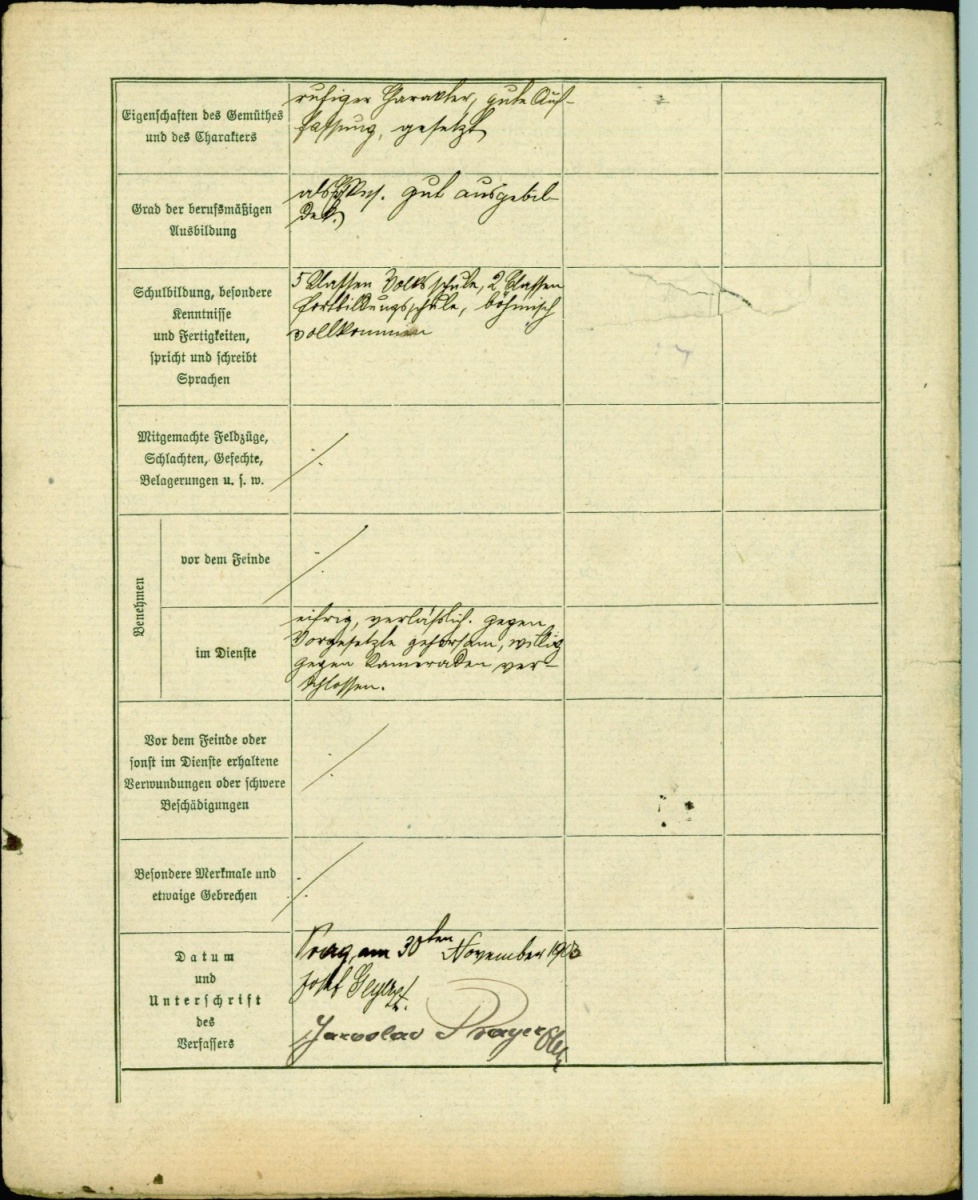 Eigenschaften des Gemüthes
und des Charakters
ruhiger Charakter, gute Auf-
fassung, gesetzt
Grad der berufsmäßigen
Ausbildung
als gut ausgebil-
det.
Schulbildung, besondere
Kenntnisse
und Fertigkeiten,
spricht und schreibt
Sprachen
5 Classen Volksschule, 2 Classen
Fortbildungsschule, böhmisch
vollkommen
Mitgemachte Feldzüge,
Schlachten, Gefechte,
Belagerungen u. s. w.
Benehmen
vor dem Feinde
im Dienste
eifrig, verläßlich. gegen
Vorgesetzte gehorsam, willig
gegen Kameraden ver-
schlossen.
Vor dem Feinde oder
sonst im Dienste erhaltene
Verwundungen oder schwere
Beschädigungen
Besondere Merkmale und
etwaige Gebrechen
Datum
und
Unterschrift
des
Verfassers
Prag, am 30ten November 1903
Josef
Jaroslav Prager